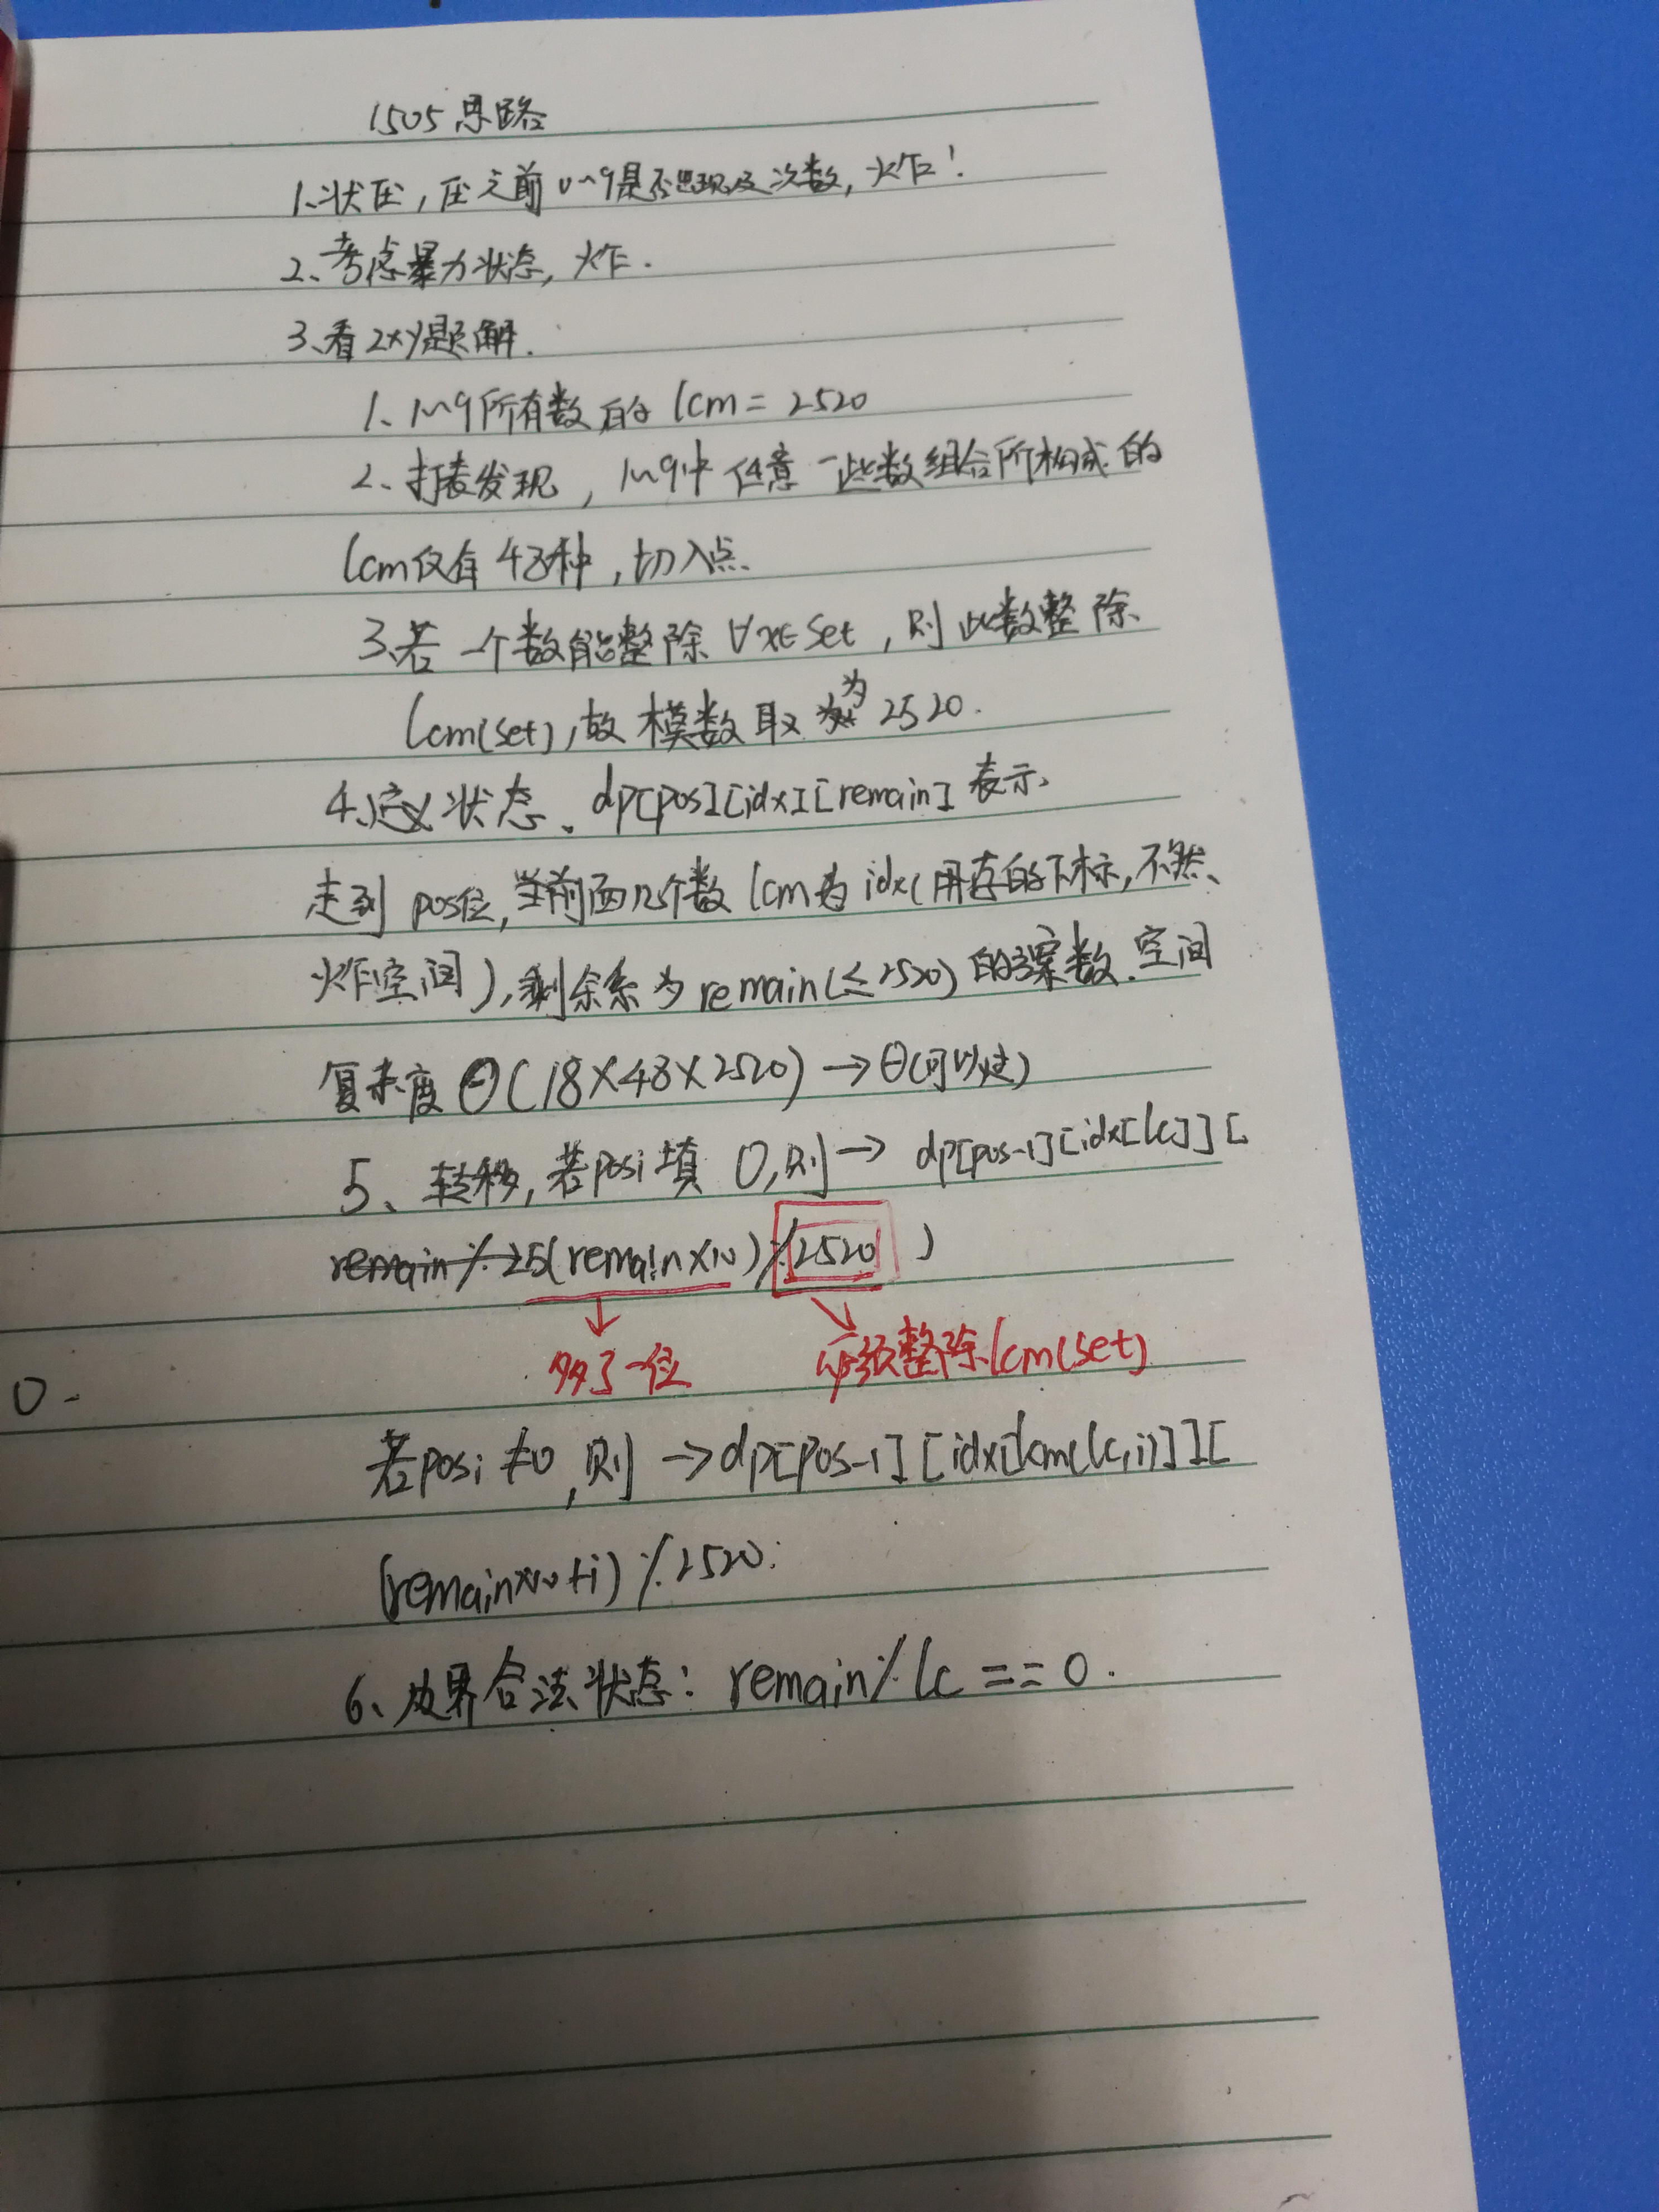 1505思路
1、状压,压之前0~9是否出现及次数,炸!
2、考虑暴力状态,炸.
3、看zxy题解.
1、1~9所有数的lcm=2520
2、打表发现,1~9中任意一些数组合所构成的
lcm仅有48种,切入点.
3、若一个数能整除∀x∈Set,则此数整除
lcm(set),故模数取为2520.
4、定义状态、dp[pos][idx][remain]表示、
走到pos位,当前面几个数lcm为idx(用存的下标,不然、
炸空间),剩余系为remain(≤2520)的方案数.空间
复杂度Θ(18×48×2520)→Θ(可以过)
5、转移,若posi填0,则→dp[pos-1][idx[lc]][
remain%25(remain×10)%2520)
多了一位 必须整除lcm(set)
0-
若posi≠0,则→dp[pos-1][idx[lcm(lc,i)]][
(remain×10+i)%2520.
6、边界合法状态:remain%lc==0.